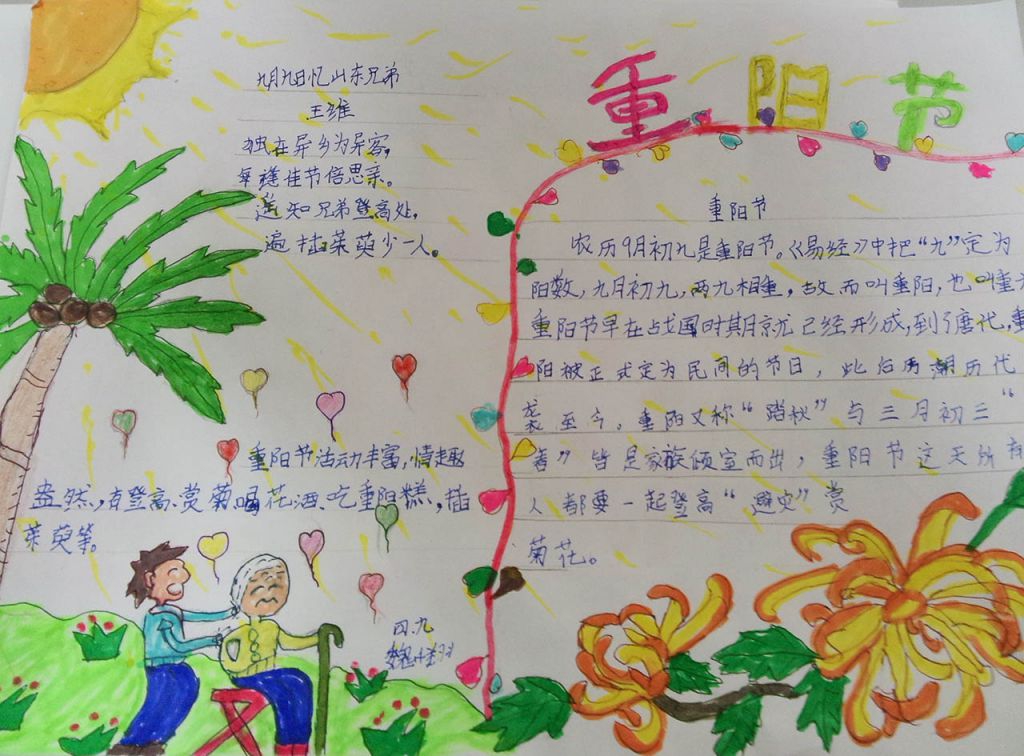 重阳节
九月九日忆山东兄弟
王维
独在异乡为异客，
每逢佳节倍思亲。
遥知兄弟登高处，
遍插茱萸少一人。
重阳节
农历9月初九是重阳节。《易经》中把“九”定为
阳数，九月初九，两九相重，故而叫重阳，也叫重
重阳节早在战国时期就已经形成，到了唐代，重
阳被正式定为民间的节日，此后历朝历代
袭至今。重阳又称“踏秋”与三月初三“
春”皆是家族倾室而出，重阳节这天所有
人都要一起登高“避灾”赏
菊花。
重阳节活动丰富，情趣
盎然，有登高、赏菊、喝花酒、吃重阳糕，插
茱萸等。
四.九